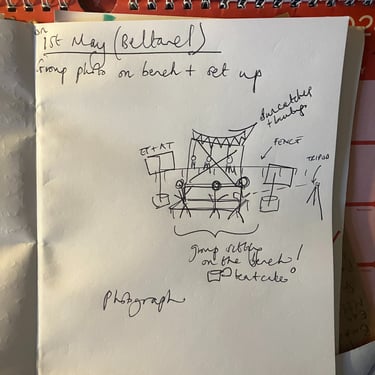 on
1st May (Beltane!)
Group photo on bench + set up
suncatchers
+ bunting
ET + AT
FENCE
TRIPOD
group sitting
on the bench!
tent cakes
Photograph
02